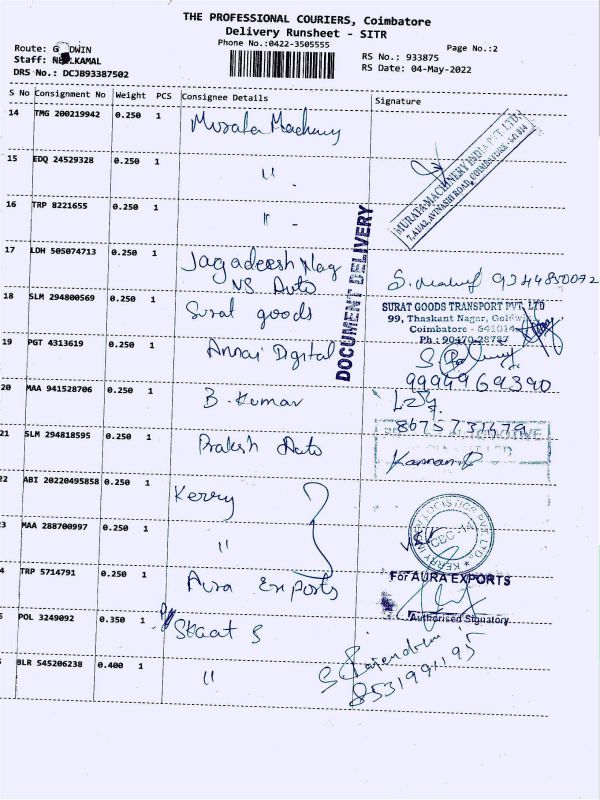 THE PROFESSIONAL COURIERS, Coimbatore
Delivery Runsheet - SITR
Phone No.:0422-3505555
Page No.:2
Route: G DWIN
Staff: NEELKAMAL
DRS No.: DCJB93387502
RS No.: 933875
RS Date: 04-May-2022
S No Consignment No Weight PCS Consignee Details Signature
14 TMG 200219942 0.250 1 Murata Machinery
MURATA MACHINERY INDIA PVT. LTD.
AVINASHI ROAD, COIMBATORE - 641 014
15 EDQ 24529328 0.250 1 "
16 TRP 8221655 0.250 1 "
DOCUMENT DELIVERY
17 LDH 505074713 0.250 1 Jagadeesh Nag
NS Auto
9244850072
18 SLM 294800569 0.250 1 Surat goods
SURAT GOODS TRANSPORT PVT. LTD
99, Thaskant Nagar, Goldwin
Coimbatore - 641014
Ph : 90470-28787
19 PGT 4313619 0.250 1 Annai Digital
9994969390
20 MAA 941528706 0.250 1 B. Kumar
8675731479
21 SLM 294818595 0.250 1 Prakash Auto
Kannan
22 ABI 20220495858 0.250 1 Kerry
KERRY INDEV LOGISTICS PVT. LTD.
CDC-14
3 MAA 288700997 0.250 1 "
4 TRP 5714791 0.250 1 Aura Exports
For AURA EXPORTS
Authorised Signatory
5 POL 3249092 0.350 1 Skaat S
BLR 545206238 0.400 1 "
S. Rajendran